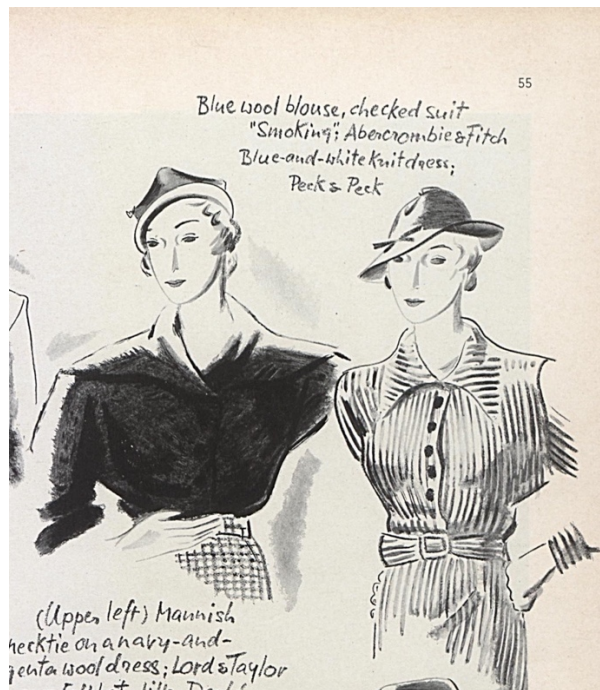 55
Blue wool blouse, checked suit
"Smoking"; Abercrombie & Fitch
Blue-and-white knit dress;
Peck & Peck
(Upper left) Mannish
necktie on a navy-and-
genta wool dress; Lord & Taylor